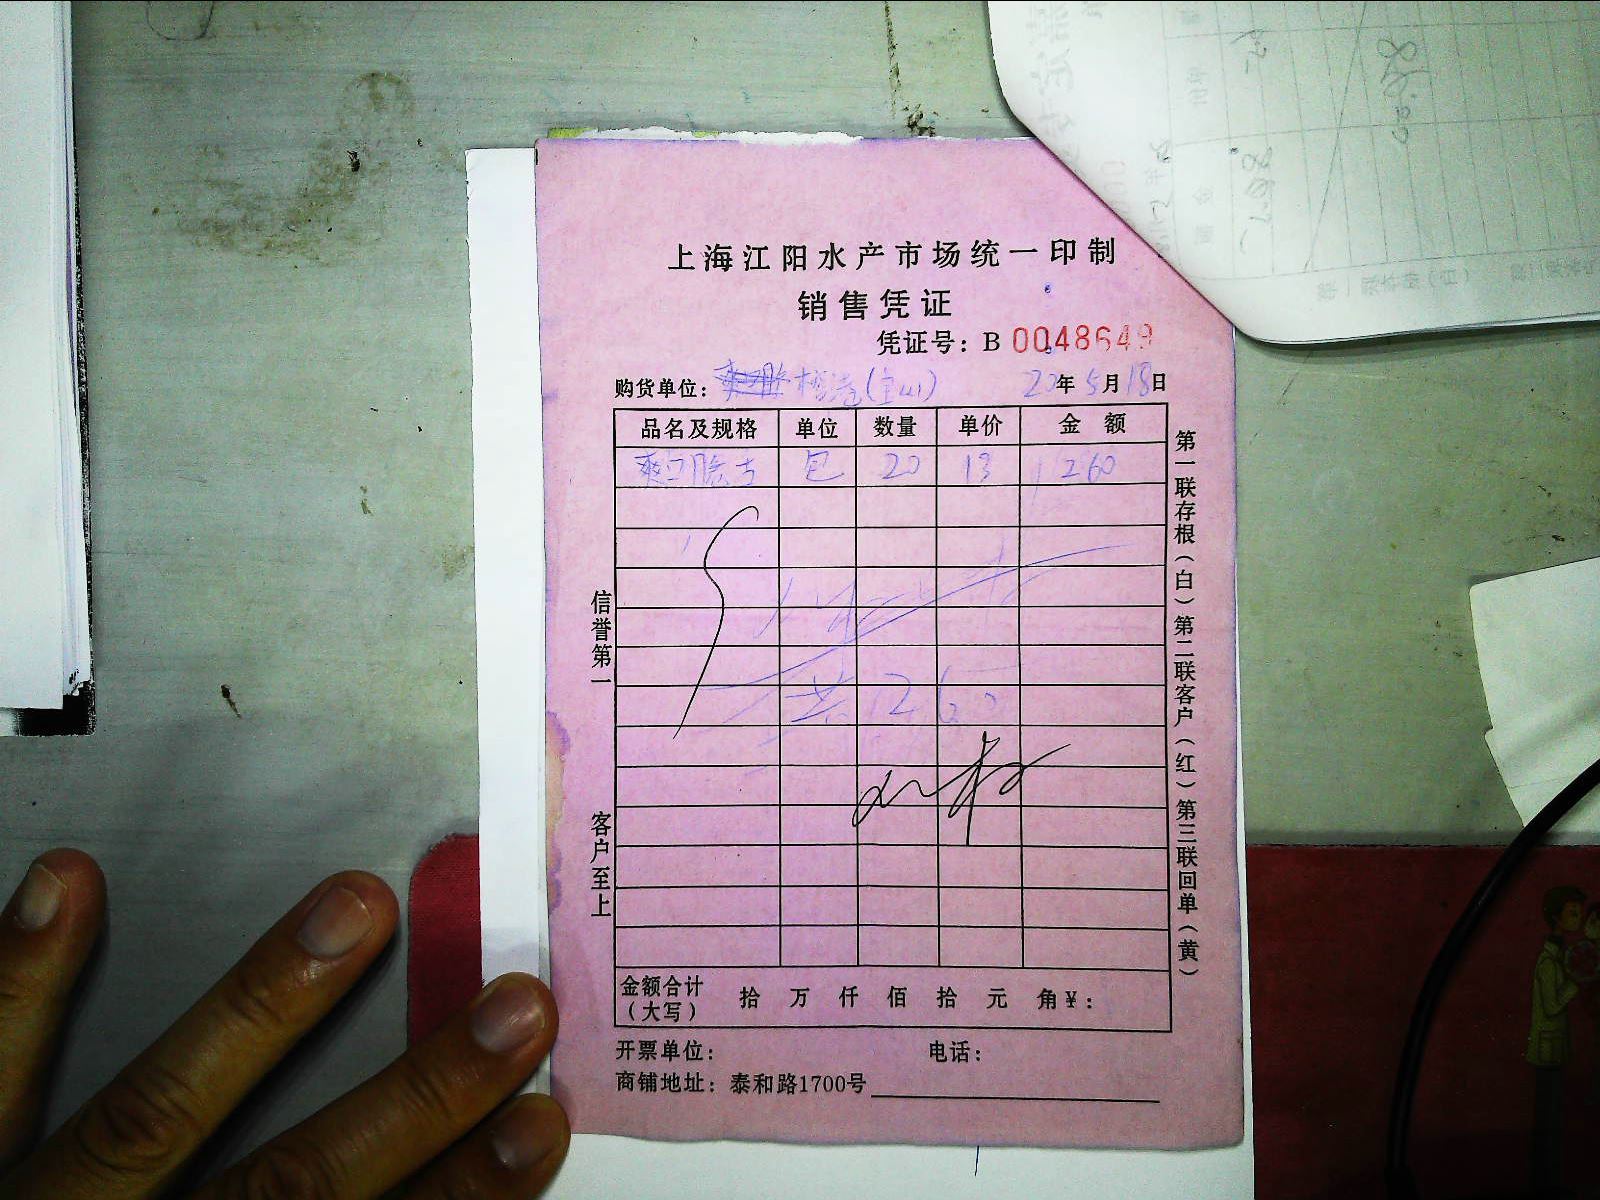 上海江阳水产市场统一印制
销售凭证
凭证号：B 0048649
购货单位： (宝山) 20年5月18日
品名及规格 单位 数量 单价 金 额
爽口脆 包 20 13 260
共260
金额合计（大写） 拾 万 仟 佰 拾 元 角￥：
开票单位： 电话：
商铺地址：泰和路1700号
信誉第一 客户至上
第一联存根（白）第二联客户（红）第三联回单（黄）